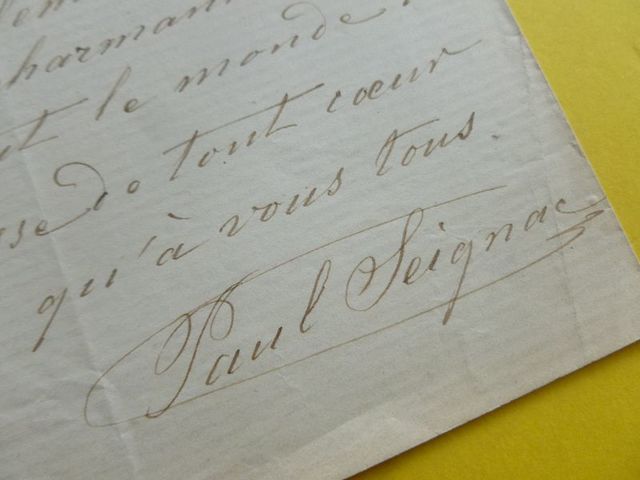 harman
le monde
de tout cœur
qu'à vous tous.
Paul Seignac